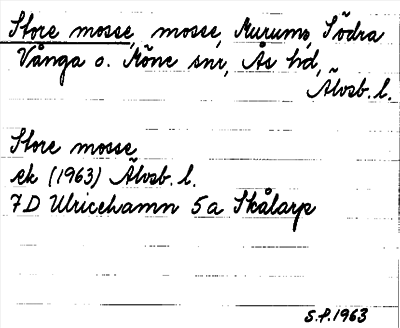 Store mosse, mosse, Murums, Södra
Vånga o. Möne snr, Ås hd,
Älvsb. l.
Store mosse
ek (1963) Älvsb. l.
7D Ulricehamn 5a Skålarp
S.P. 1963